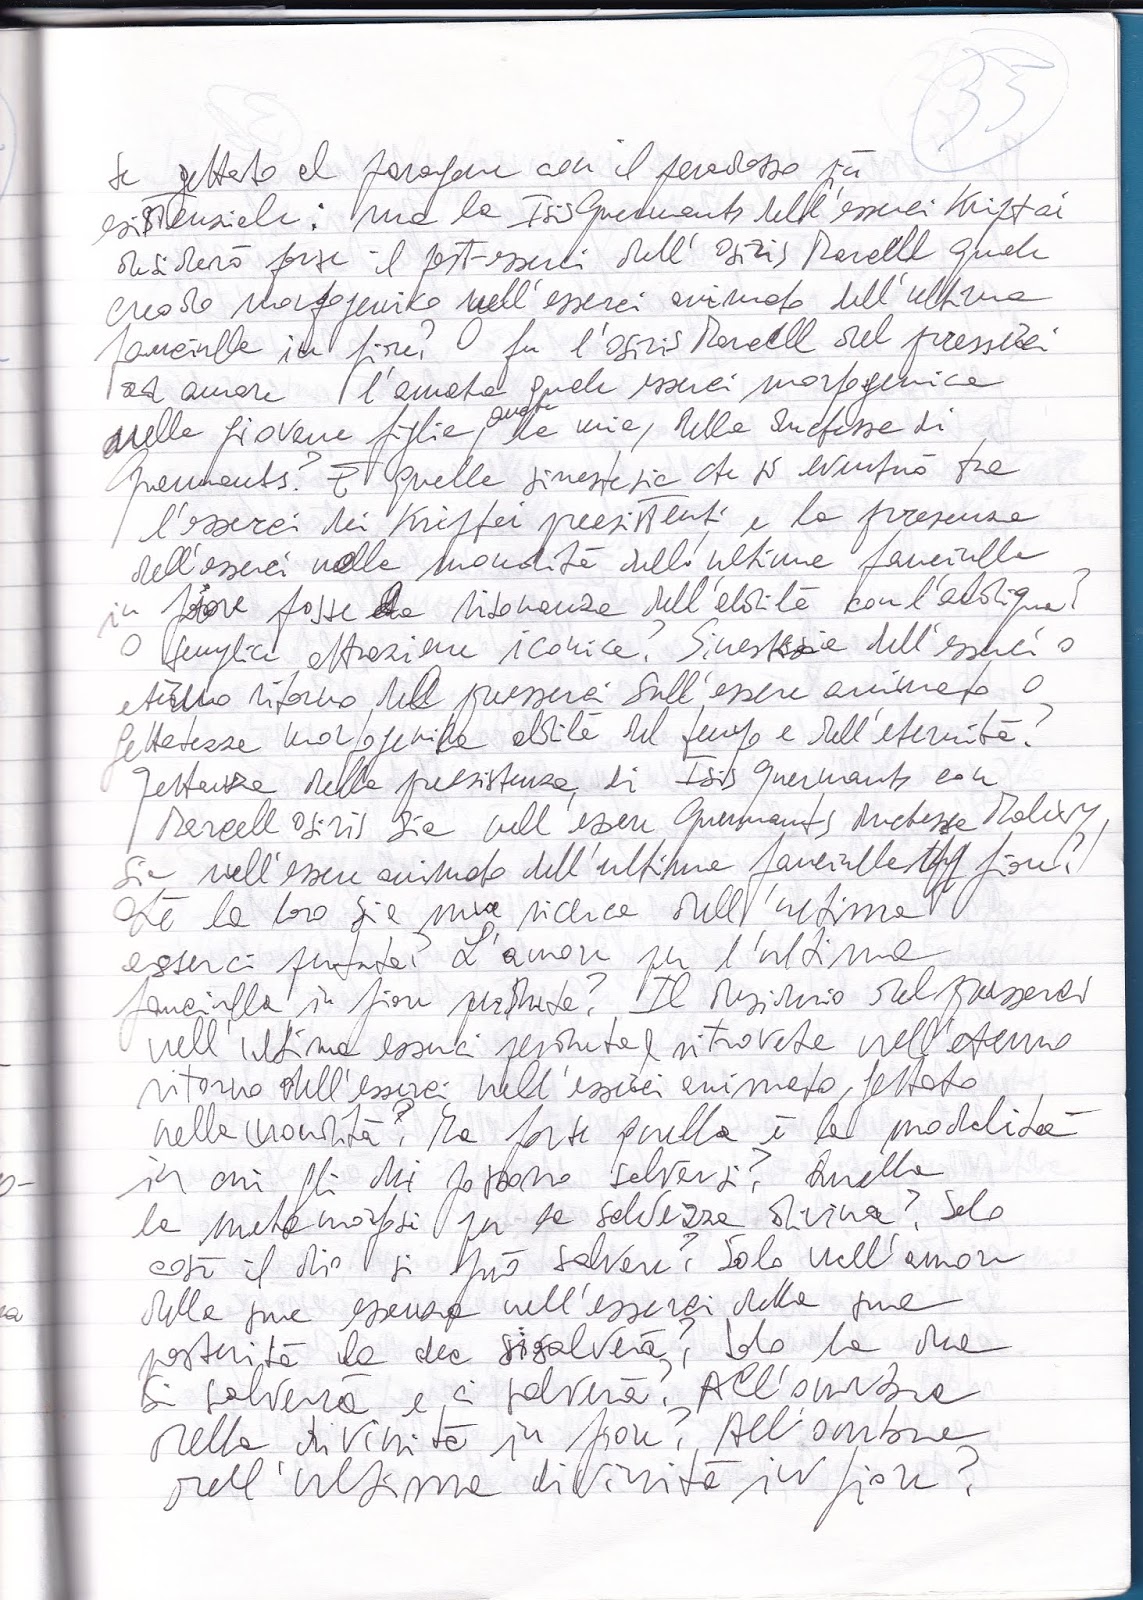 33
se gettato al paragone con il paradosso più
esistenziale: ma la Isis Guermants dell'esserci Kriptai
desiderò forse il post-esserci dell'Osiris Marcell quale
creodo morfogeniko nell'esserci animato dell'ultima
fanciulla in fiore? O fu l'Osiris Marcell del presserci
ad amare l'amata quale esserci morfogenica
nella giovane figlia, quale la mia, della Duchessa di
Guermants? E quella sinestesia che si eventuò tra
l'esserci dei Kriptai preesistenti, e la presenza
dell'esserci nella mondità dell'ultima fanciulla
in fiore fosse la risonanza dell'aldilà con l'aldiqua?
O semplici attrazione iconica? Sinestesia dell'esserci o
eterno ritorno del presserci sull'essere animato o
gettatezza morfogenika aldilà del tempo e dell'eternità?
Gettanza della preesistenza di Isis Guermants con
Marcell Osiris sia nell'essere Guermants Duchessa
sia nell'essere animato dell'ultima fanciulla in fiore?
O è la loro sia una ricerca dell'ultima
esserci perduta? L'amore per l'ultima
fanciulla in fiore perduta? Il desiderio del presserci
nell'ultima esserci perduta e ritrovata nell'eterno
ritorno dell'esserci nell'esserci animato, gettato
nella mondità? Ma forse quella è la modalità
in cui gli dei possono salvarsi? Quella
la metamorfosi per la salvezza divina? Solo
così il dio si può salvare? Solo nell'amore
della sua essenza nell'esserci della sua
posterità la dea si salverà? Solo la dea
si salverà e ci salverà? All'ombra
della divinità in fiore? All'ombra
dell'ultima divinità in fiore?